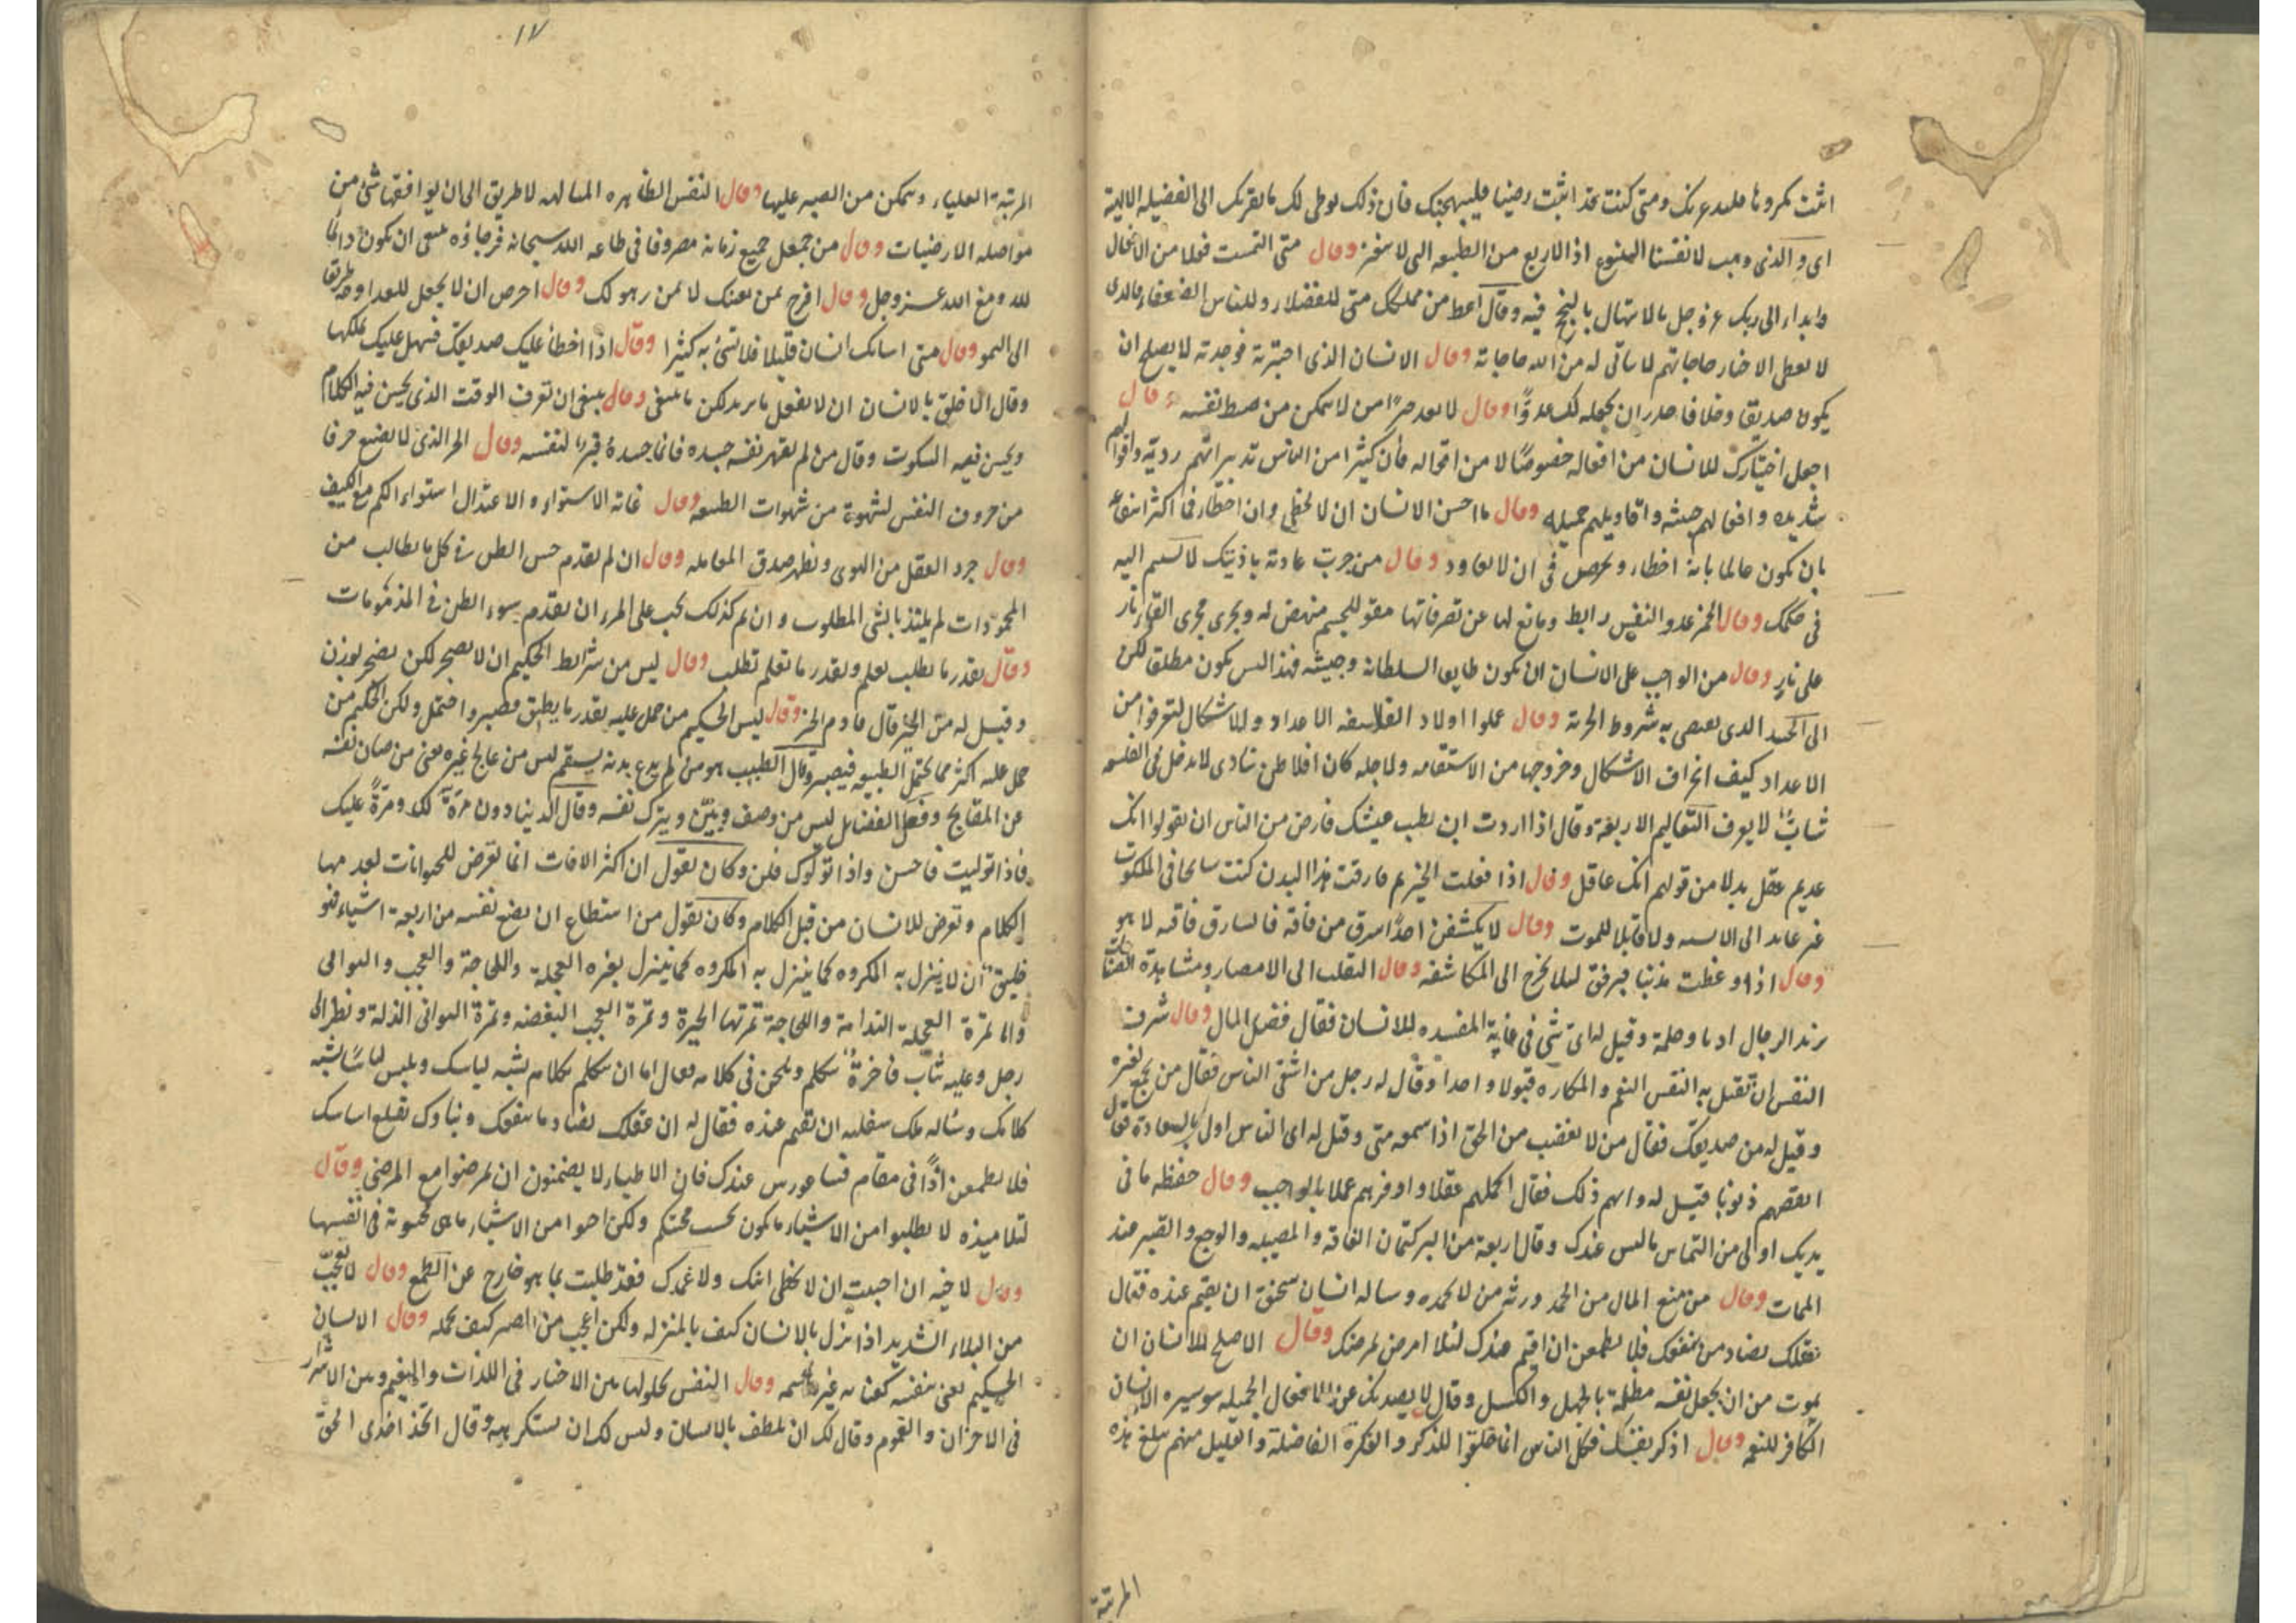 اى و الذى وهب لانفسنا الينبوع اذ الاربع من الطبيعه التى لا وقال متى التمست فعلا من الافعال
وابداء الى ربك عز وجل بالابتهال بالنجح فيه وقال اعط من مملكك متى للفضلاء وللناس الضعفاء فالذى
لا يعطى الاخيار حاجاتهم لا ياتى له من الله حاجاته وقال الانسان الذى اختبرته فوجدته لا يصلح ان
يكون صديقا وخلا فاحذر ان تجعله لك عدوًّا وقال لا يعد حرًا من لا يتمكن من ضبط نفسه وقال
اجعل اختيارك للانسان من افعاله خصوصًا لا من اقواله فان كثيرا من الناس تدبيراتهم ردية واقوالهم
شديده وافعالهم خبيثه واقاويلهم جميله وقال ما احسن الانسان ان لا يخطى وان اخطاء فما اكثر انتفاعه
بان يكون عالما بانه اخطاء ويحرص فى ان لا يعاود وقال من جربت عادته باذيتك لا اليه
فى حكمك وقال الخمر عدو النفس رابط ومانع لها عن تصرفاتها مقو للجسم منهض له ويجرى مجرى القاء نار
على نار وقال من الواجب على الانسان ان يكون طايعا لسلطانه وجيشه فهذا ليس يكون مطلق لكن
الى الحد الذى يقتضى به شروط الحرية وقال علموا اولاد الفلاسفه الاعداد والاشكال ليتعرفوا من
الاعداد كيف انحراف الاشكال وخروجها من الاستقامه ولاجله كان افلاطن ينادى لا يدخل فى الفلسفه
شابٌ لا يعرف التعاليم الاربعة وقال اذا اردت ان يطيب عيشك فارض من الناس ان يقولوا انك
عديم عقل بدلا من قولهم انك عاقل وقال اذا فعلت الخير ثم فارقت هذا البدن كنت سايحا فى الملكوت
غير عايد الى الانسيه ولا قابلا للموت وقال لا يكشفن احدًا سرق من فاقة فالسارق فاقته لا هو
وقال اذا وعظت مذنبا فبرفق ليلا يخرج الى المكاشفه وقال التقلب الى الامصار ومشاهدة
يزيد الرجال ادبا وحلمة وقيل له اى شئ فى غاية المفسده للانسان فقال فضل المال وقال شرف
النفس ان تقبل به النفس النعم والمكاره قبولا واحدا وقال له رجل من اشقى الناس فقال من يجمع لغيره
وقيل له من صديقك فقال من لا يغضب من الحق اذا سمعه متى وقيل له اى الناس اولى بالسعادة فقال
انقصهم ذنوبا قيل له وايهم ذلك فقال اكملهم عقلا واوفرهم عملا بالواجب وقال حفظه ما فى
يديك اولى من التماس ما ليس عندك وقال اربعة من البر كتمان الفاقة والمصيبه والوجع والقبر عند
الممات وقال من منع المال من الحمد ورثه من لا يحمده وساله انسان ان يقيم عنده فقال
بعقلك من ينفعك فلا تطمعن ان اقيم عندك ليلا امرض لمرضك وقال الاصلح للانسان ان
يموت من ان يجعل نفسه مظلمة بالجهل والكسل وقال لا يصدنك عن الافعال الجميله سو سيره الانسان
الكافر للنعم وقال اذكر بنفسك فكل الناس انما خلقوا للذكر والفكرة الفاضلة والقليل منهم يبلغ هذه
المرتبة
١٧
المرتبة العلياء وتمكن من الصبر عليها وقال النفس الطاهره لا طريق الى ان يوافقها شئ من
مواصله الارضيات وقال من جعل جميع زمانه مصروفا فى طاعه الله سبحانه فرجاؤه ينبغى ان يكون دائمًا
لله ومع الله عز وجل وقال افرح بمن لا بمن لك وقال احرص ان لا يجعل للعداوة طريقا
الى النمو وقال متى اسائك انسان قليلا فلا تسئ به كثيرا وقال اذا اخطأ عليك صديقك فسهل عليك
وقال الاخلق بالانسان ان لا يفعل ما يريد لكن ما ينبغى وقال ينبغى ان تعرف الوقت الذى يحسن فيه الكلام
ويحسن فيه السكوت وقال من لم يقهر نفسه جسده فانما جسده قبرٌ لنفسه وقال الحر الذى لا يضيع حرفا
من حروف النفس لشهوة من شهوات الطبيعه وقال غاية الاستواء والاعتدال استواء الكم مع الكيف
وقال جرد العقل من الهوى ونظر صدق المعامله وقال ان لم يقدم حسن الظن فى كل ما يطالب من
المحمودات لم يلتذ بالشئ المطلوب وان لم كذلك يجب على المرء ان يقدم سوء الظن فى المذمومات
وقال بقدر ما تطلب تعلم وبقدر ما تعلم تطلب وقال ليس من شرايط الحكيم ان لا يضجر لكن يضجر بوزن
وقيل له متى الخير فقال مادم الخير وقال ليس الحكيم من حمل عليه بقدر ما يطيق فصبر واحتمل ولكن الحكيم من
حمل عليه اكثر مما تحتمل الطبيعه فيصبر وقال الطبيب هو من لم يدع بدنه يسقم ليس من عالج غيره من صان نفسه
عن المقابح وفعل الفضائل ليس من وصف وبيّن ويترك نفسه وقال الدنيا دول مرّة لك ومرّةً عليك
فاذا توليت فاحسن واذا تولوك فلن وكان يقول ان اكثر الافات انما تعرض للحيوانات لعدمها
الكلام وتعرض للانسان من قبل الكلام وكان يقول من استطاع ان يمنع نفسه من اربعة اشياء فهو
خليق ان لا ينزل به المكروه كما ينزل به المكروه كما ينزل بغيره العجلة واللجاجة والعجب والتوانى
والما ثمرة العجلة الندامة واللجاجة ثمرتها الحيرة وثمرة العجب البغضه وثمرة التوانى الذلة ونظر الى
رجل وعليه ثياب فاخرةٌ يتكلم ويلحن فى كلامه فقال اما ان تتكلم بكلام يشبه لباسك وتلبس لباسًا يشبه
كلامك وساله ملك سقليه ان يقيم عنده فقال له ان عقلك يضاد ما ينفعك وبناوك يقلع اساسك
فلا تطمعن اذًا فى مقام فيثاغورس عندك فان الاطباء لا يضمنون ان يمرضوا مع المرضى وقال
لتلاميذه لا تطلبوا من الاشياء ما يكون بحسب محبتكم ولكن احبوا من الاشياء ما هى محبوبة فى انفسها
وقال لاخيه ان احببت ان لا يخطى ابنك ولا عبدك فقد طلبت بما هو خارج عن الطمع وقال لا تعجبّ
من البلاء الشديد اذا نزل بالانسان كيف بالمنزله ولكن اعجب من الصبر كيف تحمله وقال الانسان
الحكيم يعنى بنفسه كعنايه غيره بجسمه وقال النفس بحلولها بين الاخيار فى اللذات والنعيم وبين الاشرار
فى الاحزان والغموم وقال لك ان تلطف بالانسان وليس لك ان تستكر به وقال اتخذ الحق